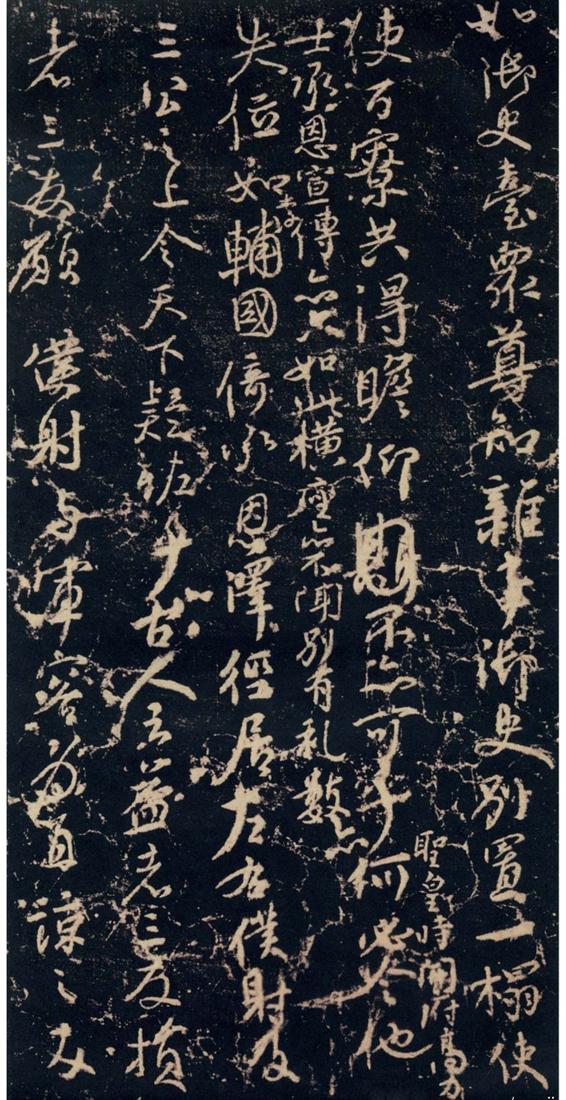 如御史臺眾尊知雜事御史別置一榻使
使百寮共得瞻仰不亦可乎何必令他
聖皇時開府高力
士承恩宣傳亦只如此橫座亦不聞別有礼數亦
失位如李輔國倚承恩澤徑居左右僕射及
三公之上令天下疑恠乎古人云益者三友損
者三友願僕射与軍容為直諒之友